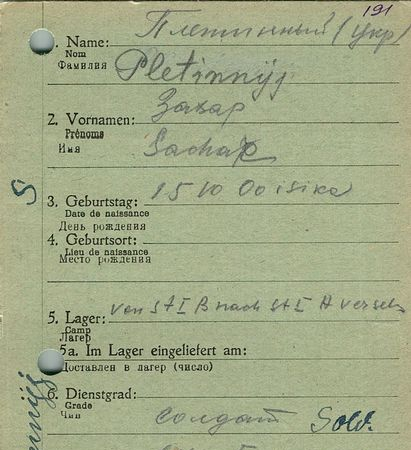 191
Плетинный (укр)
1. Name:
Nom
Фамилия
Pletinnyj
Захар
2. Vornamen:
Prénoms
Имя
Sachar
3. Geburtstag: 15 10
Date de naissance
День рождения
4. Geburtsort:
Lieu de naissance
Место рождения
5. Lager: von St I B nach St I A versetz
Camp
Лагерь
5a. Im Lager eingeliefert am:
Доставлен в лагерь (число)
6. Dienstgrad:
Grade
Чин
солдат Sold.